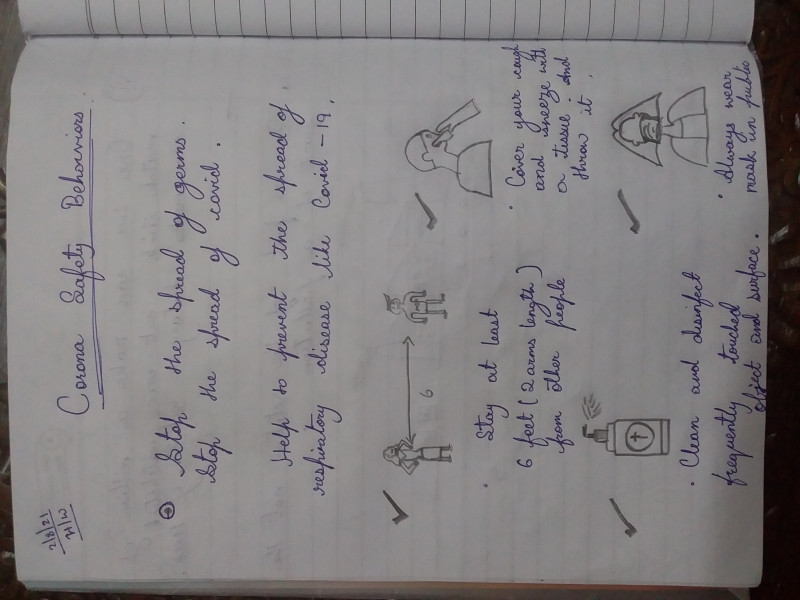 2/8/21
H/W
Corona Safety Behaiviors
Stop the spread of germs.
Stop the spread of covid.
Help to prevent the spread of
respiratory disease like Covid-19.
6
• Stay at least
6 feet (2 arms length)
from other people
• Cover your cough
and sneeze with
a tissue. And
throw it.
• Clean and disinfect
frequently touched
object and surface.
• Always wear
mask in public